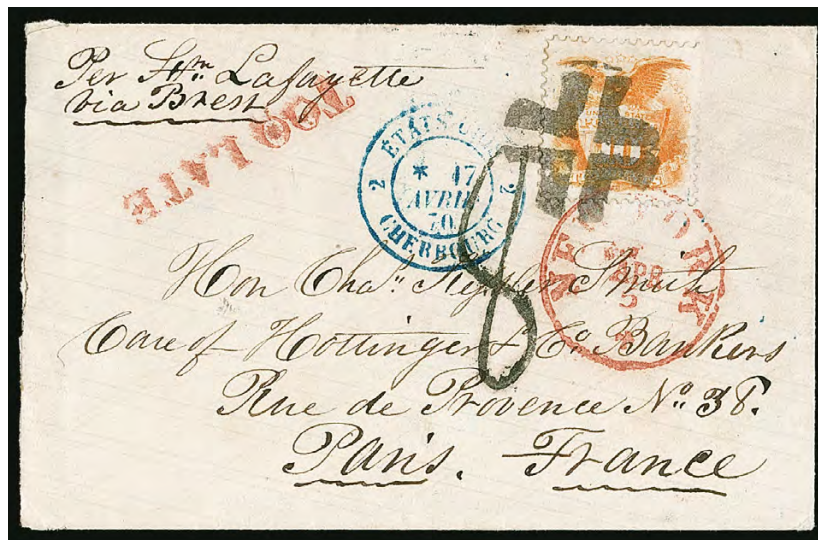 Per Stm Lafayette
via Brest
TOO LATE
ÉTATS
2 2
* 17
AVRIL
70
CHERBOURG
10
8
NEW YORK
APR
5
Hon Chas Smith
Care of Hottinger & Co Bankers
Rue de Provence No 38.
Paris. France